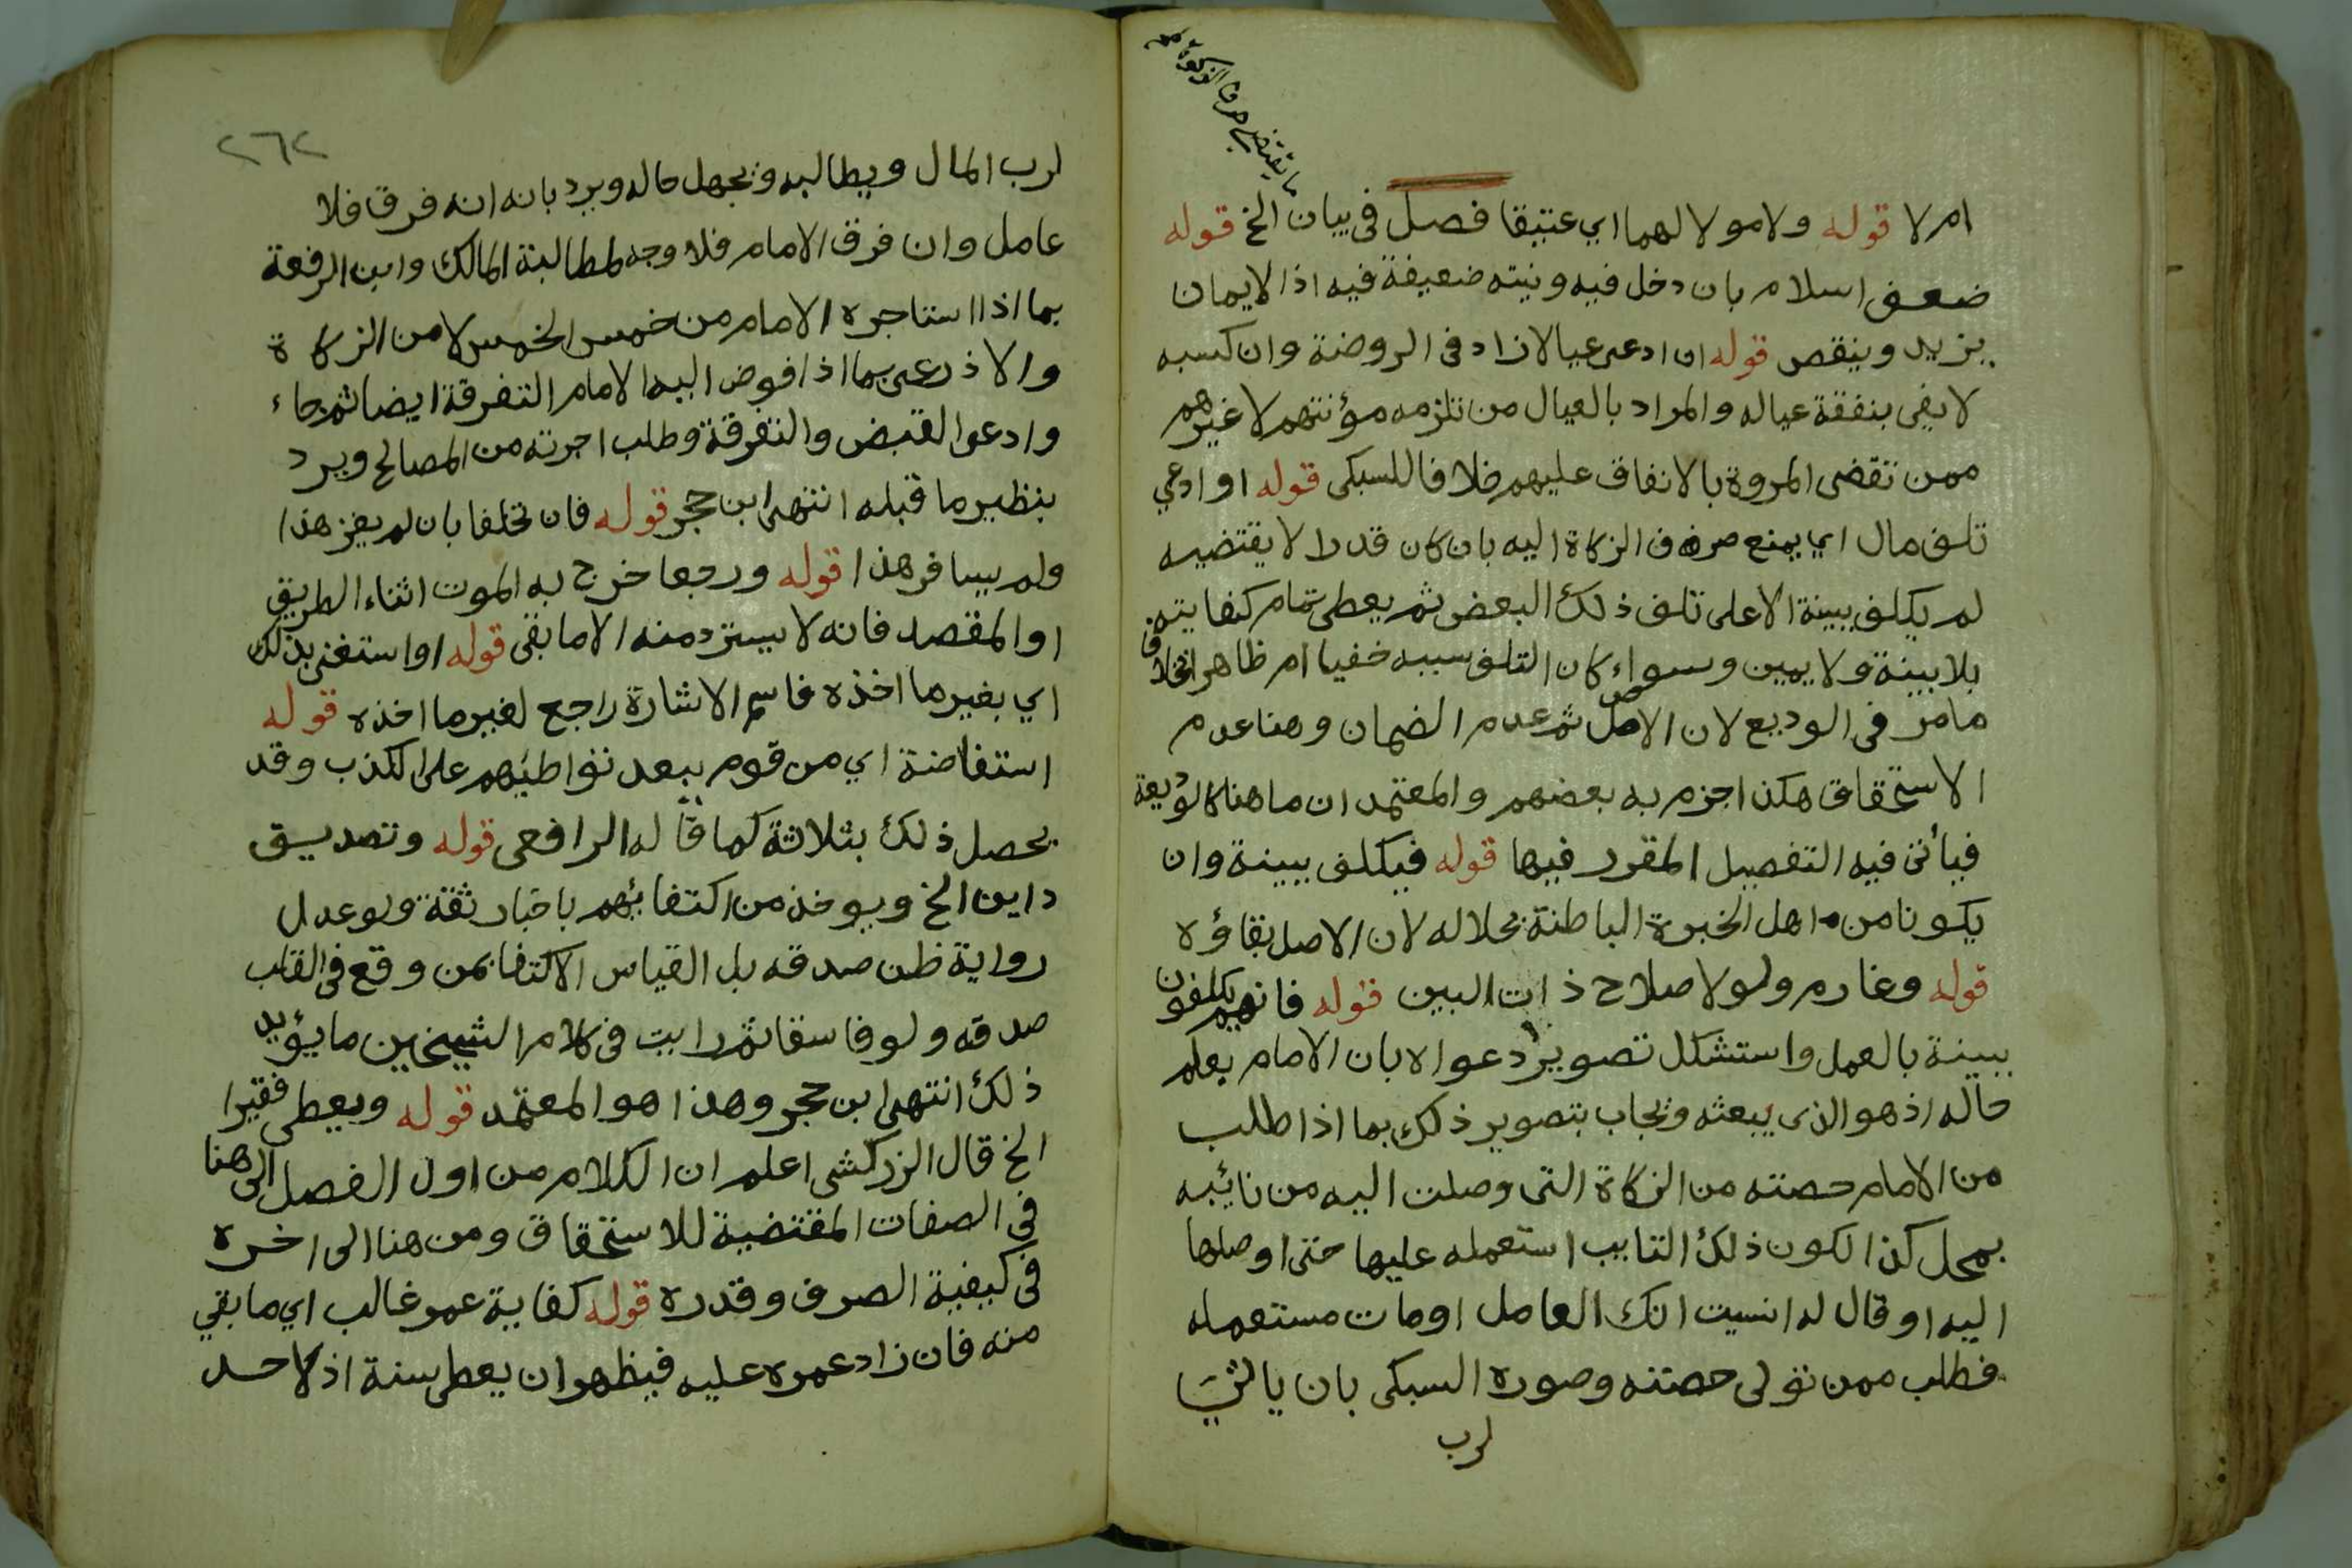 ما يقتضي صرف الزكوة
ام لا قوله ولا مولا لهما اي عتيقا فصل فى بيان الخ قوله
ضعف اسلام بان دخل فيه ونيته ضعيفة فيه اذ الايمان
يزيد وينقص قوله ان ادعى عيالا زاد فى الروضة وان كسبه
لا يفى بنفقة عياله والمراد بالعيال من تلزمه مؤنتهم لا غيرهم
ممن تقضى المروة بالانفاق عليهم خلافا للسبكى قوله او ادعي
تلف مال اي يمنع صرف الزكاة اليه بان كان قدرا لا يقتضيه
لم يكلف ببينة الا على تلف ذلك البعض ثم يعطى تمام كفايته
بلا بينة ولا يمين وسواء كان التلف سببه خفيا ام ظاهرا بخلاف
مامر فى الوديع لان الاصل ثم عدم الضمان وهنا عدم
الاستحقاق هكذا جزم به بعضهم والمعتمد ان ما هنا كالوديعة
فيأتى فيه التفصيل المقرر فيها قوله فيكلف ببينة وان
يكونا من اهل الخبرة الباطنة بحلاله لان الاصل بقاؤه
قوله وغارم ولو لاصلاح ذات البين قوله فانهم يكلفون
ببينة بالعمل واستشكل تصوير دعواه بان الامام يعلم
حاله اذ هو الذى يبعثه ويجاب بتصوير ذلك بما اذا طلب
من الامام حصته من الزكاة التى وصلت اليه من نائبه
بمحل كذا لكون ذلك النايب استعمله عليها حتى اوصلها
اليه او قال له انسيت انك العامل او مات مستعمله
فطلب ممن تولى حصته وصوره السبكى بان ياتي
لرب
٢٦٢
لرب المال ويطالبه ويجهل حاله ويرد بانه انه فرق فلا
عامل وان فرق الامام فلا وجه لمطالبة المالك وابن الرفعة
بما اذا استاجره الامام من خمس الخمس لا من الزكاة
والاذرعى بما اذا فوض اليه الامام التفرقة ايضا ثم جاء
وادعوا القبض والتفرقة وطلب اجرته من المصالح ويرد
بنظير ما قبله انتهى ابن حجر قوله فان تخلفا بان لم يغز هذا
ولم يسافر هذا قوله ورجعا خرج به الموت اثناء الطريق
او المقصد فانه لا يسترد منه الا ما بقى قوله او استغنى بذلك
اي بغير ما اخذه فاسم الاشارة راجع لغير ما اخذه قوله
استفاضة اي من قوم يبعد تواطئهم على الكذب وقد
يحصل ذلك بثلاثة كما قاله الرافعى قوله وتصديق
داين الخ ويوخذ من اكتفائهم باخبار ثقة ولو عدل
رواية ظن صدقه بل القياس الاكتفا بمن وقع فى القلب
صدقه ولو فاسقا ثم رايت فى كلام الشيخين ما يؤيد
ذلك انتهى ابن حجر وهذا هو المعتمد قوله ويعطى فقيرا
الخ قال الزركشى اعلم ان الكلام من اول الفصل الى هنا
في الصفات المقتضية للاستحقاق ومن هنا الى اخره
فى كيفية الصرف وقدره قوله كفاية عمر غالب اي ما بقي
منه فان زاد عمره عليه فيظهر ان يعطى سنة اذ لا حد